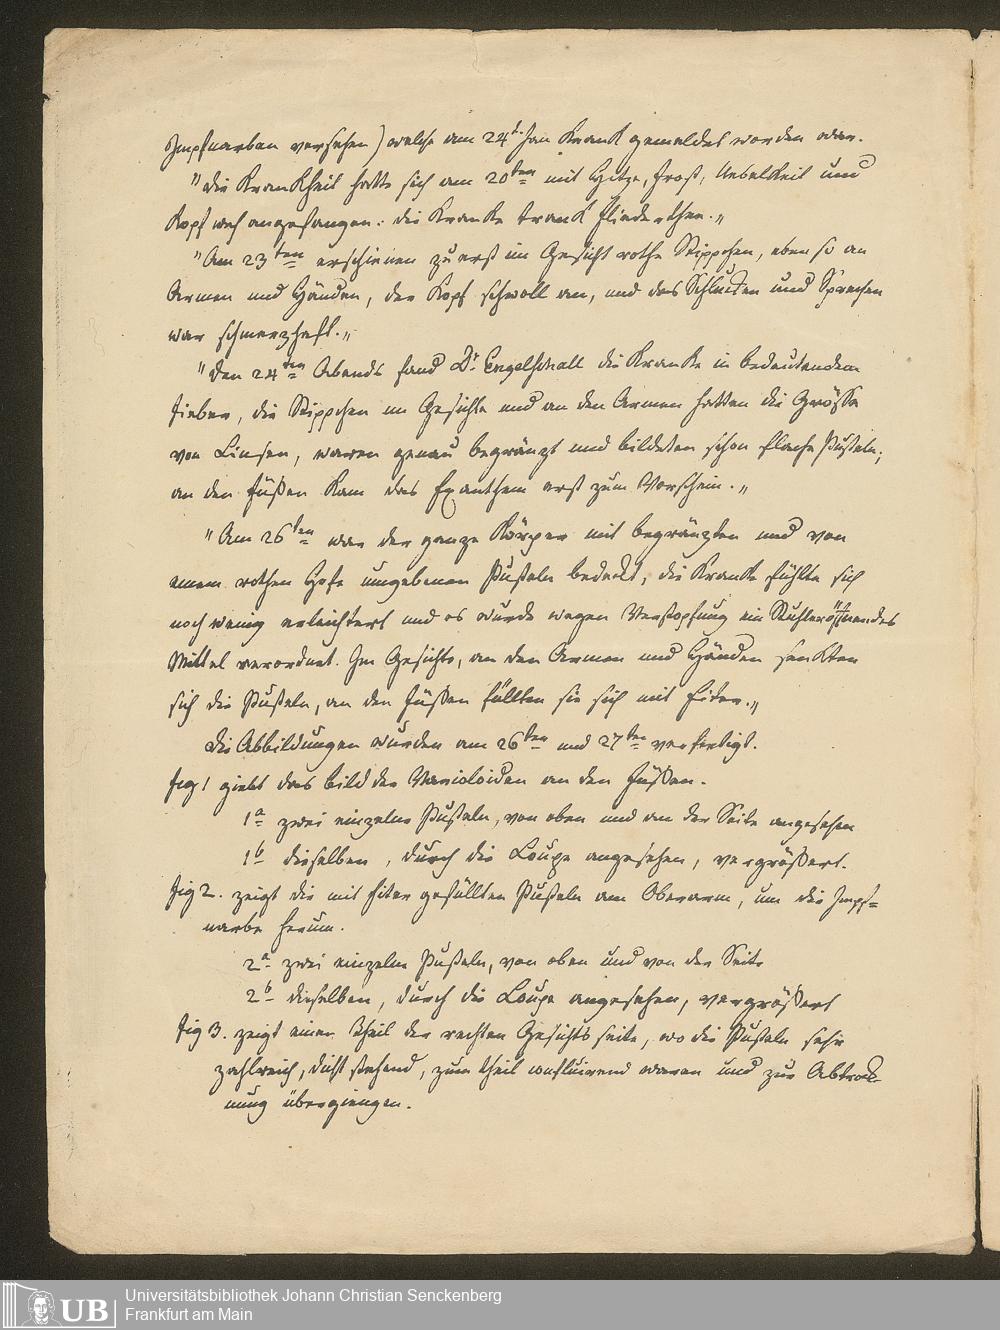 Impfnarben versehen) welche am 24t. Jan krank gemeldet worden war.
"Die Krankheit hatte sich am 20ten mit Hitze, Frost, Uebelkeit und
Kopfweh angefangen: die Kranke trank Fliederthee."
"Am 23ten erschienen zuerst im Gesicht rothe Stippchen, eben so an
Armen und Händen, der Kopf schwoll an, und das Schlucken und Sprechen
war schmerzhaft."
"Den 24ten Abends fand Dr. Engelschall die Kranke in bedeutendem
Fieber, die Stippchen im Gesichte und an den Armen hatten die Grösse
von Linsen, waren genau begränzt und bildeten schon flache Pusteln;
an den Füßen kam das Exanthem erst zum Vorschein."
"Am 26ten war der ganze Körper mit begränzten und von
einem rothen Hofe umgebenen Pusteln bedeckt, die Kranke fühlte sich
noch wenig erleichtert und es wurde wegen Verstopfung ein Stuhleröffnendes
Mittel verordnet. Im Gesichte, an den Armen und Händen senkten
sich die Pusteln, an den Füßen füllten sie sich mit Eiter."
Die Abbildungen wurden am 26ten und 27ten verfertigt.
Fig 1 giebt das Bild der Varioloiden an den Füßen.
1a zwei einzelne Pusteln, von oben und von der Seite angesehen
1b dieselben, durch die Loupe angesehen, vergrößert.
Fig 2. zeigt die mit Eiter gefüllten Pusteln am Oberarm, um die Impf=
narbe herum.
2a zwei einzelne Pusteln, von oben und von der Seite
2b dieselben, durch die Loupe angesehen, vergrößert
Fig 3. zeigt einen Theil der rechten Gesichtsseite, wo die Pusteln sehr
zahlreich, dicht stehend, zum theil confluirend waren und zur Abtrock-
nung übergiengen.
UB
Universitätsbibliothek Johann Christian Senckenberg
Frankfurt am Main